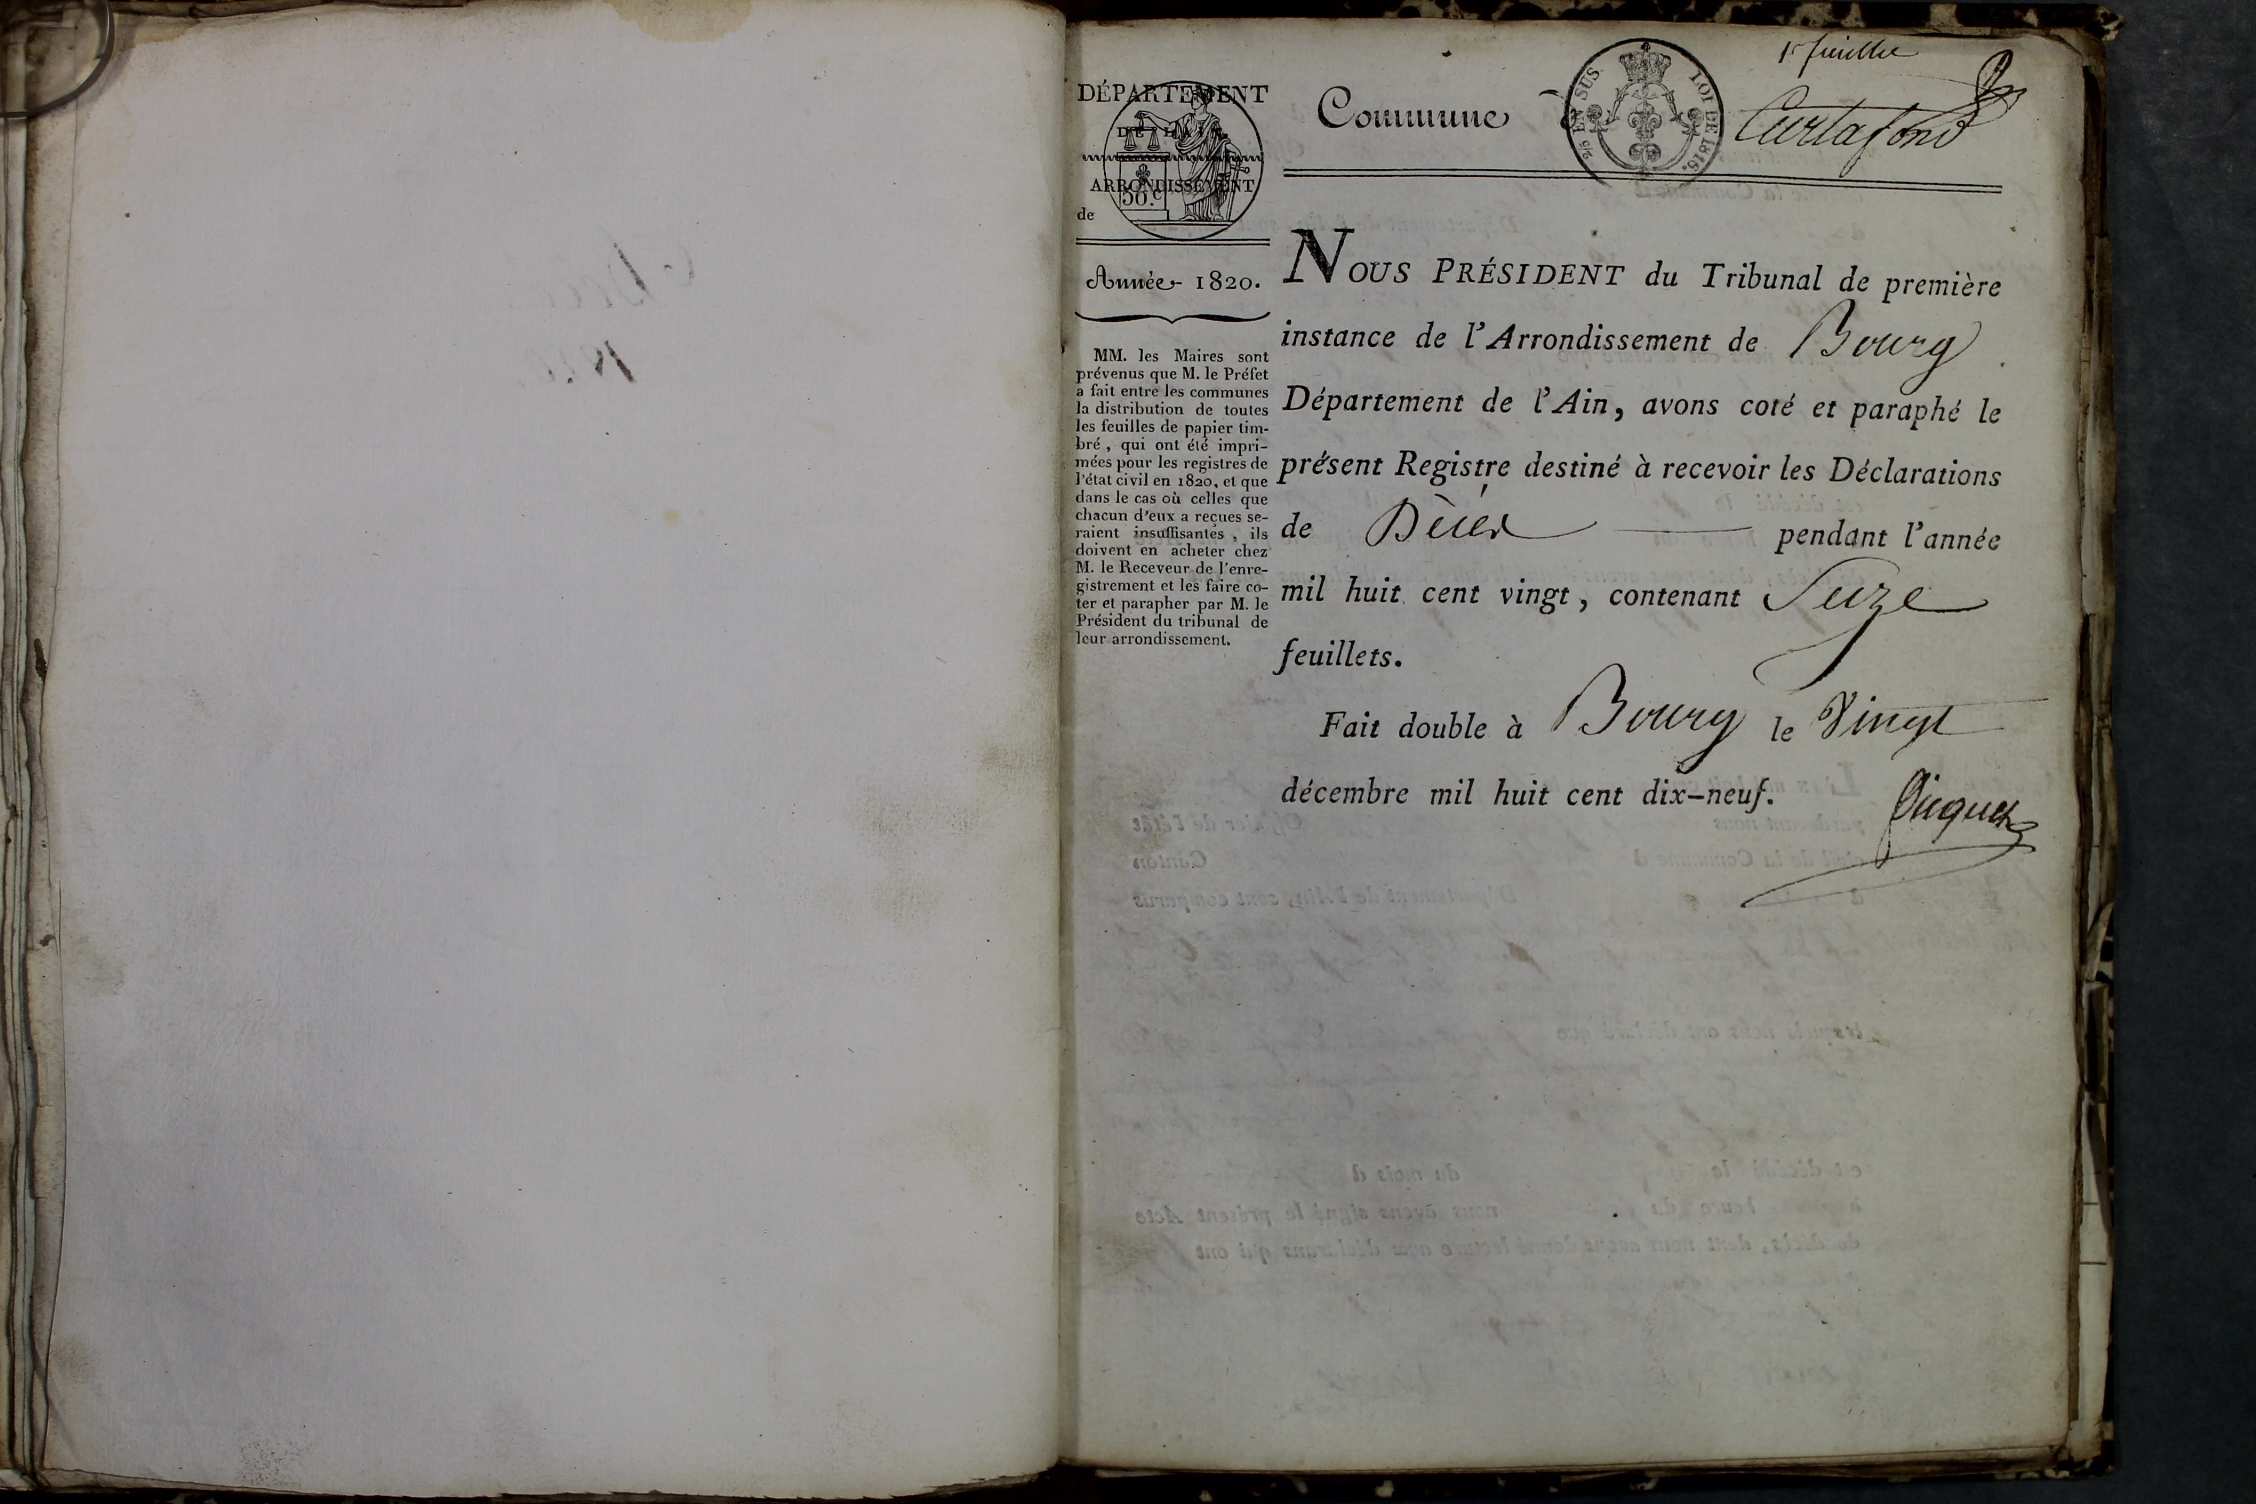 1er feuillet
DÉPARTEMENT
DE L'AIN
ARRONDISSEMENT
50.c
de
Commune d
2/5 EN SUS. LOI DE 1816.
Curtafond
Année 1820.
MM. les Maires sont
prévenus que M. le Préfet
a fait entre les communes
la distribution de toutes
les feuilles de papier tim-
bré, qui ont été impri-
mées pour les registres de
l'état civil en 1820, et que
dans le cas où celles que
chacun d'eux a reçues se-
raient insuffisantes, ils
doivent en acheter chez
M. le Receveur de l'enre-
gistrement et les faire co-
ter et parapher par M. le
Président du tribunal de
leur arrondissement.
NOUS PRÉSIDENT du Tribunal de première
instance de l'Arrondissement de Bourg
Département de l'Ain, avons coté et paraphé le
présent Registre destiné à recevoir les Déclarations
de Décès pendant l'année
mil huit cent vingt, contenant Seize
feuillets.
Fait double à Bourg le Vingt
décembre mil huit cent dix-neuf.